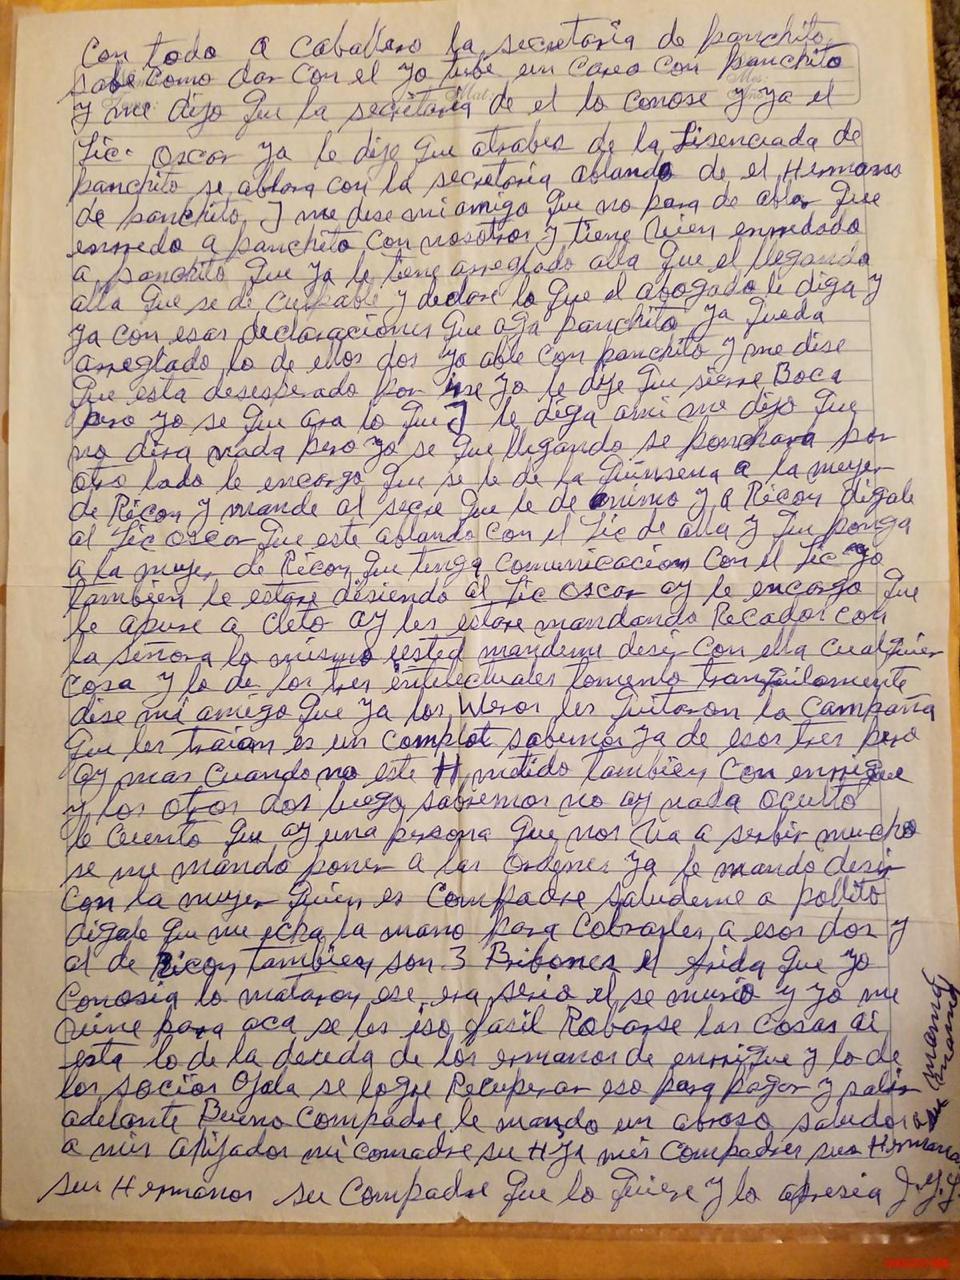 Con todo a caballero la secretaria de panchito
sabe como dar con el yo tube un careo con panchito
y me dijo que la secretaria de el lo conose y ya el
Lic. Oscar ya le dije que atrabes de la Lisenciada de
panchito se ablara con la secretaria ablando de el Hermano
de panchito, J me dise mi amigo que no para de ablar que
enrredo a panchito con nosotros y tiene vien enrredado
a panchito que ya le tiene arreglado alla que el llegando
alla que se de culpable y declare lo que el abogado le diga y
ya con esas declaraciones que aga panchito ya queda
arreglado lo de ellos dos yo able con panchito y me dise
que esta desesperado por irse yo le dije que sierre Boca
pero yo se que ara lo que J le diga ami me dijo que
no dira nada pero yo se que llegando se ponchara por
otro lado le encargo que se le de la Quinsena a la mujer
de Ricon y mande al secre que le de animo y a Ricon digale
al Lic Oscar que este ablando con el Lic de alla y que ponga
a la mujer de Ricon que tenga comunicacion con el Lic yo
tambien le estare disiendo al Lic Oscar ay le encargo que
le apure a cleto ay les estare mandando Recados con
la señora lo mismo usted mandeme desir con ella cualquier
cosa y lo de los tres intelectuales tomenlo tranquilamente
dise mi amigo que ya los Weros les quitaron la campaña
que les traian es un complot sabemos ya de esos tres pero
ay mas cuando no este H metido tambien con enrrique
y los otros dos luego sabremos no ay nada oculto
le cuento que ay una persona que nos va a serbir mucho
se me mando poner a las ordenes ya le mando desir
con la mujer quien es compadre saludeme a pollito
digale que me echa la mano para cobrarles a esos dos y
al de Ricon tambien son 3 Bribones el Arida que yo
conosia lo mataron ese era serio el se murio y yo me
vine para aca se les iso fasil Robarse las cosas ai
esta lo de la deueda de los ermanos de enrrique y lo de
los socios Ojala se logre Recuperar eso para pagar y salir
adelante Bueno Compadre le mando un abraso saludos a su mamá
a mis aijados mi comadre su Hija mis compadres sus Hermanas
sus Hermanos su Compadre que lo quiere y lo apresia J.G.L.